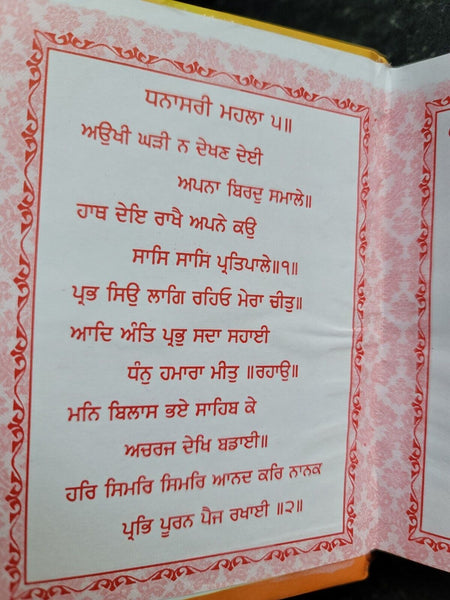 ਧਨਾਸਰੀ ਮਹਲਾ ੫॥
ਅਉਖੀ ਘੜੀ ਨ ਦੇਖਣ ਦੇਈ
ਅਪਨਾ ਬਿਰਦੁ ਸਮਾਲੇ॥
ਹਾਥ ਦੇਇ ਰਾਖੈ ਅਪਨੇ ਕਉ
ਸਾਸਿ ਸਾਸਿ ਪ੍ਰਤਿਪਾਲੇ॥੧॥
ਪ੍ਰਭ ਸਿਉ ਲਾਗਿ ਰਹਿਓ ਮੇਰਾ ਚੀਤੁ॥
ਆਦਿ ਅੰਤਿ ਪ੍ਰਭੁ ਸਦਾ ਸਹਾਈ
ਧੰਨੁ ਹਮਾਰਾ ਮੀਤੁ ॥ਰਹਾਉ॥
ਮਨਿ ਬਿਲਾਸ ਭਏ ਸਾਹਿਬ ਕੇ
ਅਚਰਜ ਦੇਖਿ ਬਡਾਈ॥
ਹਰਿ ਸਿਮਰਿ ਸਿਮਰਿ ਆਨਦ ਕਰਿ ਨਾਨਕ
ਪ੍ਰਭਿ ਪੂਰਨ ਪੈਜ ਰਖਾਈ ॥੨॥